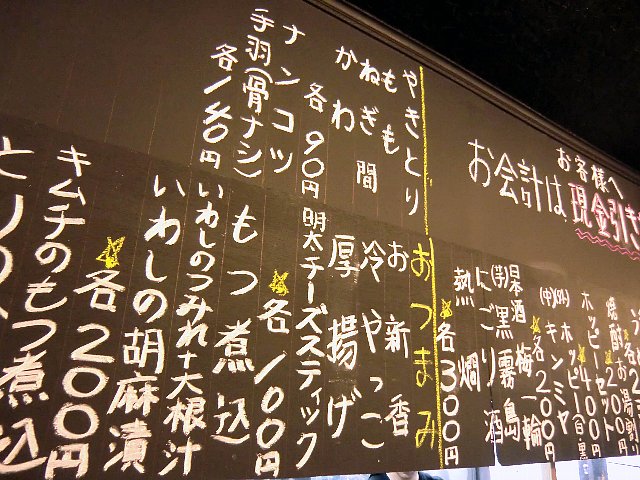 お客様へ
お会計は現金引き
焼酎
ホッピーセット
400円
ホッピー(白・黒)
(中)(外)
キンミヤ
各200円
日本酒 梅一輪
(芋)黒霧島
にごり酒
熱燗
各300円
おつまみ
お新香
冷やっこ
厚揚げ
明太チーズスティック
各100円
もつ煮込
いわしのつみれ十大根汁
いわしの胡麻漬
各200円
キムチのもつ煮込
やきとり
もも
ねぎ間
かわ
各90円
ナンコツ
手羽(骨ナシ)
各140円